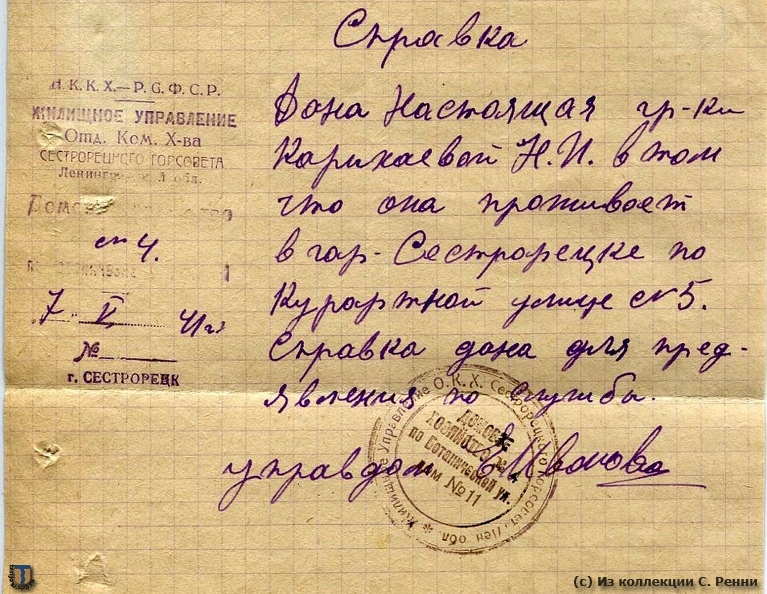 Справка
Н. К. К. Х.—Р. С. Ф. С. Р.
ЖИЛИЩНОЕ УПРАВЛЕНИЕ
Отд. Ком. Х-ва
СЕСТРОРЕЦКОГО ГОРСОВЕТА
Ленинградской обл.
№ 4.
7 V 41 г.
№
г. СЕСТРОРЕЦК
Дана Настоящая гр-ки
Карихаевой Н. И. в том
что она проживает
в гор- Сестрорецке по
Курортной улице № 5.
Справка дана для пред-
явления по службы.
управдом Иванова
Жилищное Управление О.К.Х. Сестрорецкого Горсовет. Лен обл. *
ДОМОВОЕ
ХОЗЯЙСТВО № 4
по Ботанической ул.
дом № 11
(c) Из коллекции С. Ренни